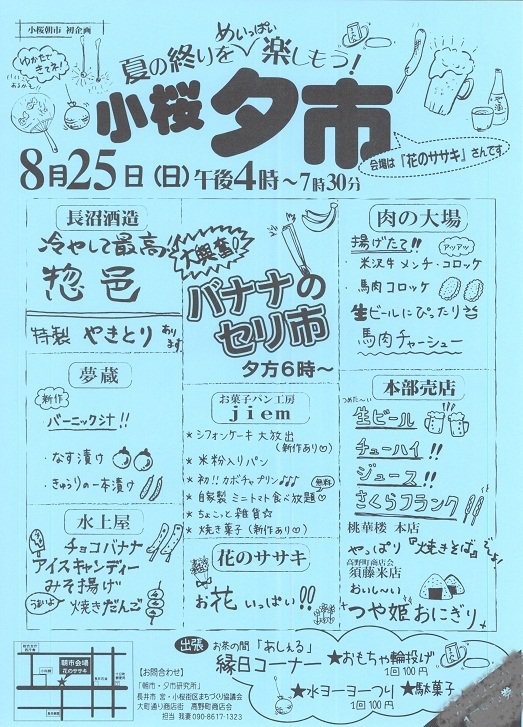 小桜朝市 初企画
ゆかたできてネ!
夏の終りをめいっぱい楽しもう!
小桜 夕市
会場は「花のササキ」さんです
8月25日(日)午後4時~7時30分
長沼酒造
冷やして最高!
惣邑
特製 やきとり あります
大興奮!
バナナの
セリ市
夕方6時~
肉の大場
揚げたて!! アッアッ
米沢牛メンチ・コロッケ
・馬肉コロッケ
生ビールにぴったり
馬肉チャーシュー
夢蔵
新作
バーニック汁!!
・なす漬け
・きゅうりの一本漬け
お菓子パン工房
jiem
★ シフォンケーキ 大放出
(新作あり♡)
★ 米粉入りパン
★ 初!! カボチャプリン♪♪♪
無料
★ 自家製 ミニトマト食べ放題♡
★ ちょこっと 雑貨☆
★ 焼き菓子(新作あり♡)
本部売店
つめた~い
生ビール
チューハイ!!
ジュース!!
さくらフランク
桃華楼 本店
やっぱり『焼きそば』でしょ!
高野町商店会
須藤米店
おいし~い
つや姫おにぎり
水上屋
チョコバナナ
アイスキャンディー
みそ揚げ
うまいよ
焼きだんご
花のササキ
お花 いっぱい!!
朝市会場
花のササキ
【お問合わせ】
「朝市・夕市研究所」
長井市 宮・小桜街区まちづくり協議会
大町通り商店街 高野町商店会
担当 我妻 090-8617-1323
出張
お茶の間「あしぇる」
縁日コーナー
★おもちゃ輪投げ
1回100円
★水ヨーヨーつり
1回100円
★駄菓子